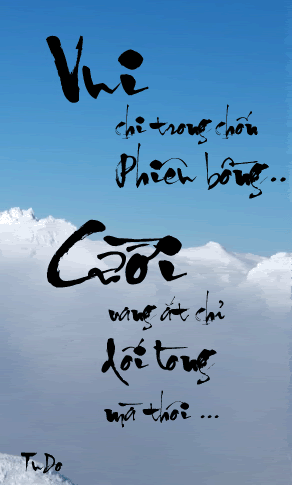 Vui
chi trong chốn
Phiên bồng..
Cười
vang ắt chỉ
dối tong
mà thôi ...
TuDo